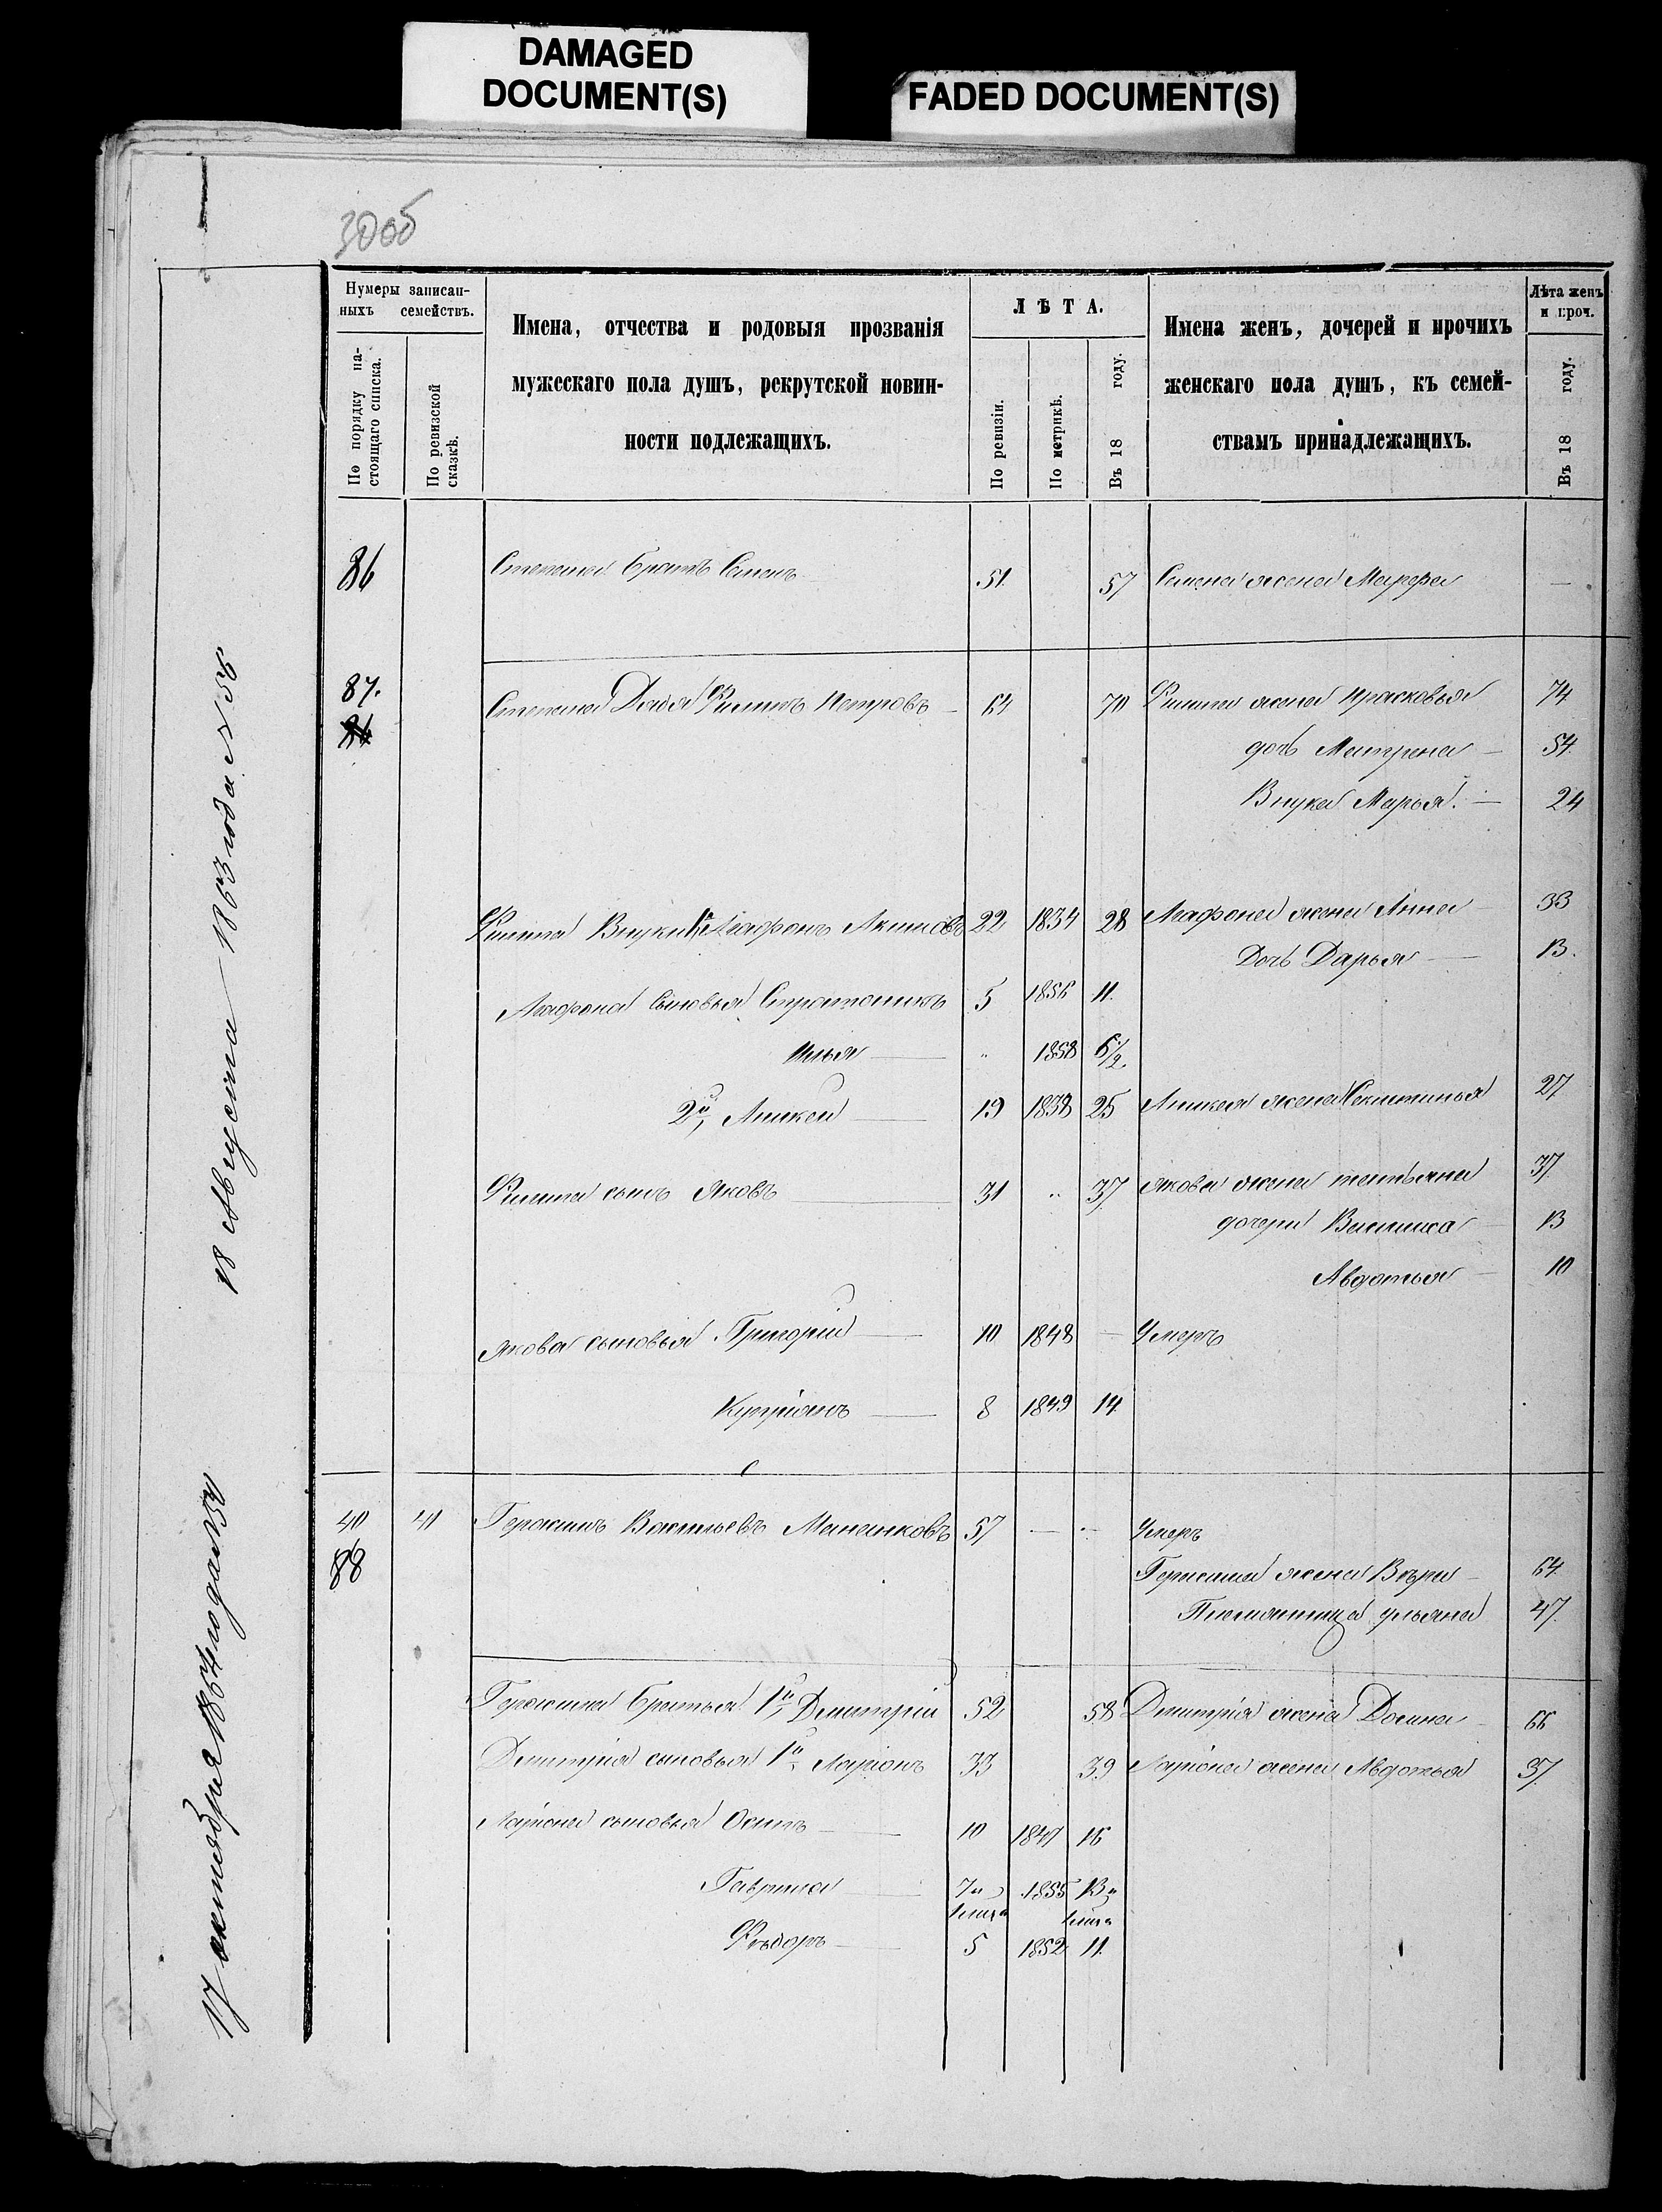 DAMAGED
DOCUMENT(S)
FADED DOCUMENT(S)
30об
Нумеры записан-
ныхъ семействъ.
По порядку на-
стоящаго списка.
По ревизской
сказкѣ.
Имена, отчества и родовыя прозванія
мужескаго пола душъ, рекрутской повин-
ности подлежащихъ.
ЛѢТА.
По ревизіи.
По метрикѣ.
Въ 18 году.
Имена женъ, дочерей и прочихъ
женскаго пола душъ, къ семей-
ствамъ принадлежащихъ.
Лѣта женъ
и проч.
Въ 18 году.
86 Степана братъ Семенъ 51. 57 Семена жена Марфа —
87. Степана Дядя Филипъ Петровъ — 64 70 Филипа жена Прасковья 74
86
дочь Матрена — 54.
Внука Марья. — 24
Филипа Внуки 1й Агафонъ Акимовъ 22 1834 28 Агафона жена Анна — 33
Дочь Дарья — 13.
Агафона сыновья Стратоникъ 5 1856 11.
Илья — " 1858 6½
2й, Аникей — 19 1838 25 Аникея жена 27
Филипа сынъ Яковъ — 31 " 37 Якова жена татьяна 37.
дочери 13
Авдотья — 10
Якова сыновья Григорій — 10 1848 — Умеръ
Купріянъ — 8 1849 14
40 41 Герасимъ Васильевъ 57 — — Умеръ
86
Герасима жена Вѣра — 64
Племянница ульяна 47.
Герасима братья 1й, Дмитрій 52 58 Дмитрія жена 66
Дмитрія сыновья 1й, Ларіонъ 33 39 Ларіона жена Авдотья 37.
Ларіона сыновья Осипъ — 10 1847 16
Гаврила — 7и 1855 13и
Ѳедоръ — 5 1852 11.
18 Августа 1863 года N 56
17 октября 1864 года N 54